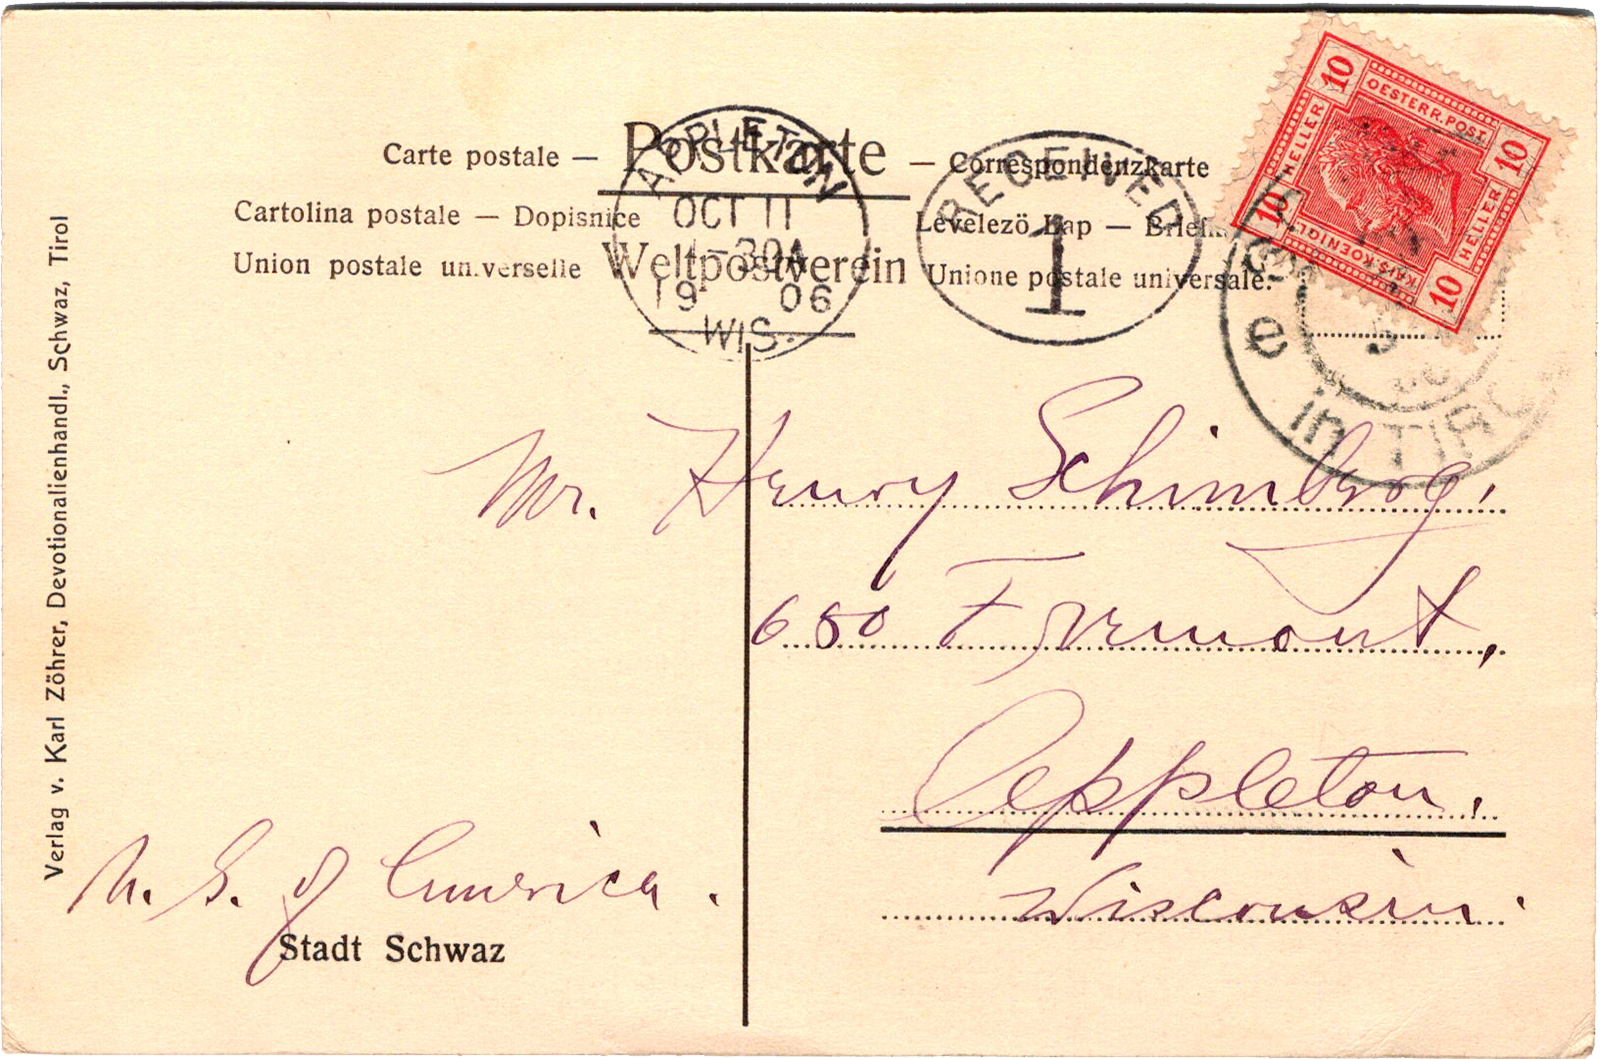 Carte postale — Postkarte — Correspondenzkarte
Cartolina postale — Dopisnice Levelezö Lap —
Union postale universelle Weltpostverein Unione postale universale.
APPLETON
OCT 11
-30A
1906
WIS.
RECEIVED
1
10 OESTERR. POST. 10
HELLER HELLER
10 KAIS. KOENIGL. 10
e in TIROL
Mr. Henry Schimberg,
680 Fremont,
Appleton.
Wisconsin.
U. S. of America.
Stadt Schwaz
Verlag v. Karl Zöhrer, Devotionalienhandl., Schwaz, Tirol